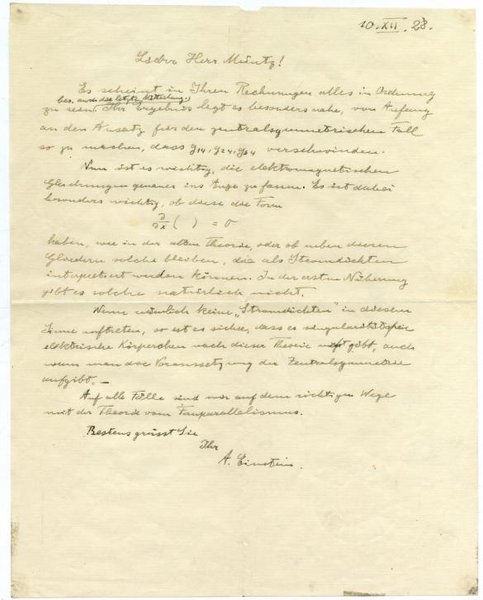 10. XII. 28.
Lieber Herr Müntz!
Es scheint in Ihren Rechnungen alles in Ordnung
bes. auch die letzte Mitteilung
zu sein. Ihr Ergebnis legt es besonders nahe, von Anfang
an den Ansatz für den zentralsymmetrischen Fall
so zu machen, dass g14, g24, g34 verschwinden.
Nun ist es wichtig, die elektromagnetischen
Gleichungen genauer ins Auge zu fassen. Es ist dabei
besonders wichtig, ob diese die Form
∂/∂x ( ) = 0
haben, wie in der alten Theorie, oder ob neben diesen
Gliedern solche bleiben, die als Stromdichten
interpretiert werden können. In der ersten Näherung
gibt es solche natürlich nicht.
Wenn nämlich keine „Stromdichten" in diesem
Sinne auftreten, so ist es sicher, dass es singularitätsfreie
elektrische Körperchen nach dieser Theorie nicht gibt, auch
wenn man die Voraussetzung der Zentralsymmetrie
aufgibt. —
Auf alle Fälle sind wir auf dem richtigen Wege
mit der Theorie vom Fernparallelismus.
Bestens grüsst Sie
Ihr
A. Einstein.